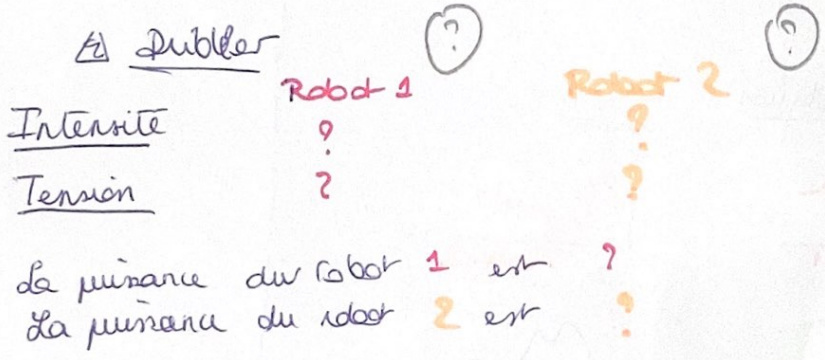 ? ?
Publier
Robot 1 Robot 2
Intensité ? ?
Tension ? ?
La puissance du robot 1 est ?
La puissance du robot 2 est ?